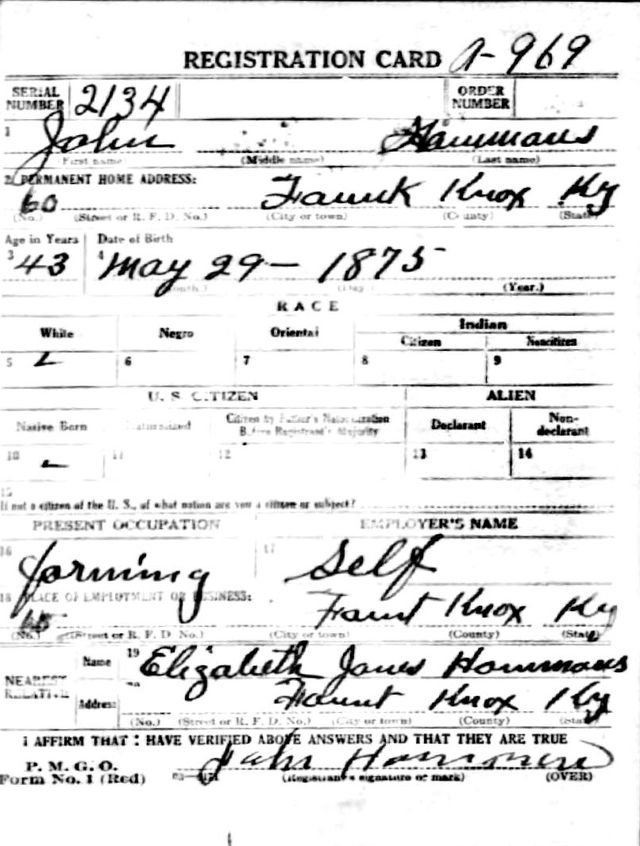 REGISTRATION CARD A-969
SERIAL NUMBER 2134 ORDER NUMBER
1 John Hammans
First name) (Middle name) (Last name)
2 PERMANENT HOME ADDRESS:
60 Faunt Knox Ky
(No.) (Street or R. F. D. No.) (City or town) (County) (State)
Age in Years Date of Birth
3 43 4 May 29 - 1875
(Month.) (Day.) (Year.)
RACE
White Negro Oriental Indian
Citizen Noncitizen
5 6 7 8 9
U. S. CITIZEN ALIEN
Native Born Naturalized Citizen by Father's Naturalization Before Registrant's Majority Declarant Non-declarant
10 11 12 13 14
15
If not a citizen of the U. S., of what nation are you a citizen or subject?
PRESENT OCCUPATION EMPLOYER'S NAME
16 Forming 17 Self
18 PLACE OF EMPLOYMENT OR BUSINESS:
Faunt Knox Ky
(No.) (Street or R. F. D. No.) (City or town) (County) (State)
NEAREST RELATIVE Name 19 Elizabeth Janes Hammans
Address 20 Faunt Knox Ky
(No.) (Street or R. F. D. No.) (City or town) (County) (State)
I AFFIRM THAT I HAVE VERIFIED ABOVE ANSWERS AND THAT THEY ARE TRUE
P. M. G. O.
Form No. 1 (Red) John
(Registrant's signature or mark) (OVER)